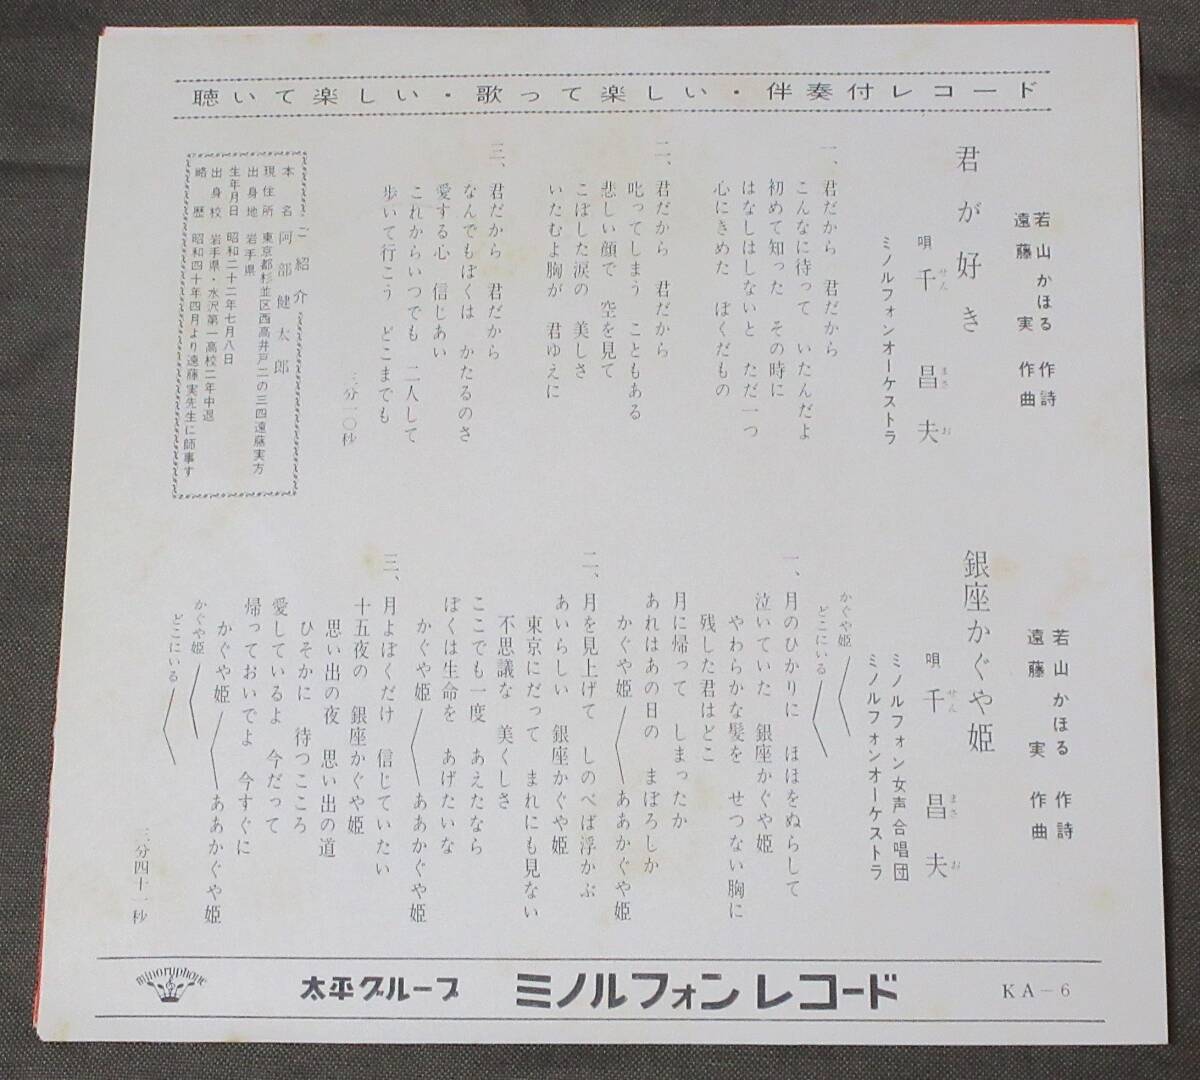 聴いて楽しい・歌って楽しい・伴奏付レコード
若山かほる 作詩
遠藤実 作曲
君が好き
唄 千昌夫
せん まさ お
ミノルフォンオーケストラ
一、君だから 君だから
こんなに待って いたんだよ
初めて知った その時に
はなしはしないと ただ一つ
心にきめた ぼくだもの
二、君だから 君だから
叱ってしまう こともある
悲しい顔で 空を見て
こぼした涙の 美しさ
いたむよ胸が 君ゆえに
三、君だから 君だから
なんでもぼくは かたるのさ
愛する心 信じあい
これからいつでも 二人して
歩いて行こう どこまでも
三分一〇秒
ご紹介
本名 阿部健太郎
現住所 東京都杉並区西高井戸二の三四遠藤実方
出身地 岩手県
生年月日 昭和二十二年七月八日
出身校 岩手県・水沢第一高校二年中退
略歴 昭和四十年四月より遠藤実先生に師事す
若山かほる 作詩
遠藤実 作曲
銀座かぐや姫
唄 千昌夫
せん まさ お
ミノルフォン女声合唱団
ミノルフォンオーケストラ
かぐや姫
どこにいる
一、月のひかりに ほほをぬらして
泣いていた 銀座かぐや姫
やわらかな髪を せつない胸に
残した君はどこ
月に帰って しまったか
あれはあの日の まぼろしか
かぐや姫――ああかぐや姫
二、月を見上げて しのべば浮かぶ
あいらしい 銀座かぐや姫
東京にだって まれにも見ない
不思議な 美くしさ
ここでも一度 あえたなら
ぼくは生命を あげたいな
かぐや姫――ああかぐや姫
三、月よぼくだけ 信じていたい
十五夜の 銀座かぐや姫
思い出の夜 思い出の道
ひそかに 待つこころ
愛しているよ 今だって
帰っておいでよ 今すぐに
かぐや姫――ああかぐや姫
かぐや姫
どこにいる
三分四十一秒
minoruphone
太平グループ ミノルフォンレコード KA-6